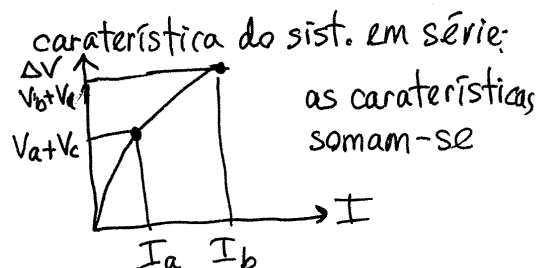 caraterística do sist. em série:
ΔV
as caraterísticas
somam-se
Va+Vc
I
Ia Ib